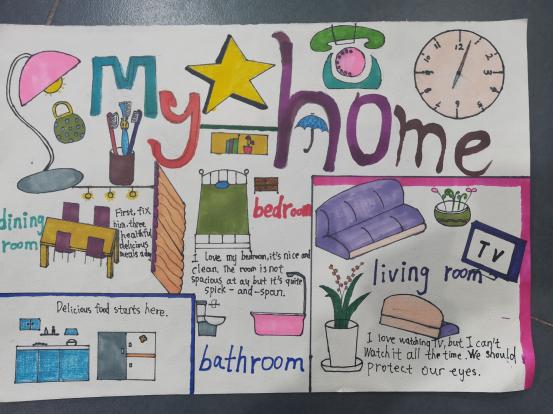 My home
12
3
6
9
dining
room
First, fix
him. three
healthful
delicious
meals a day
bedroom
I love my bedroom, it's nice and
clean. The room is not
spacious at ay but it's quite
spick-and-span.
living room
TV
I love watching TV, but I can't
Watch it all the time. We should
protect our eyes.
Delicious food starts here.
bathroom